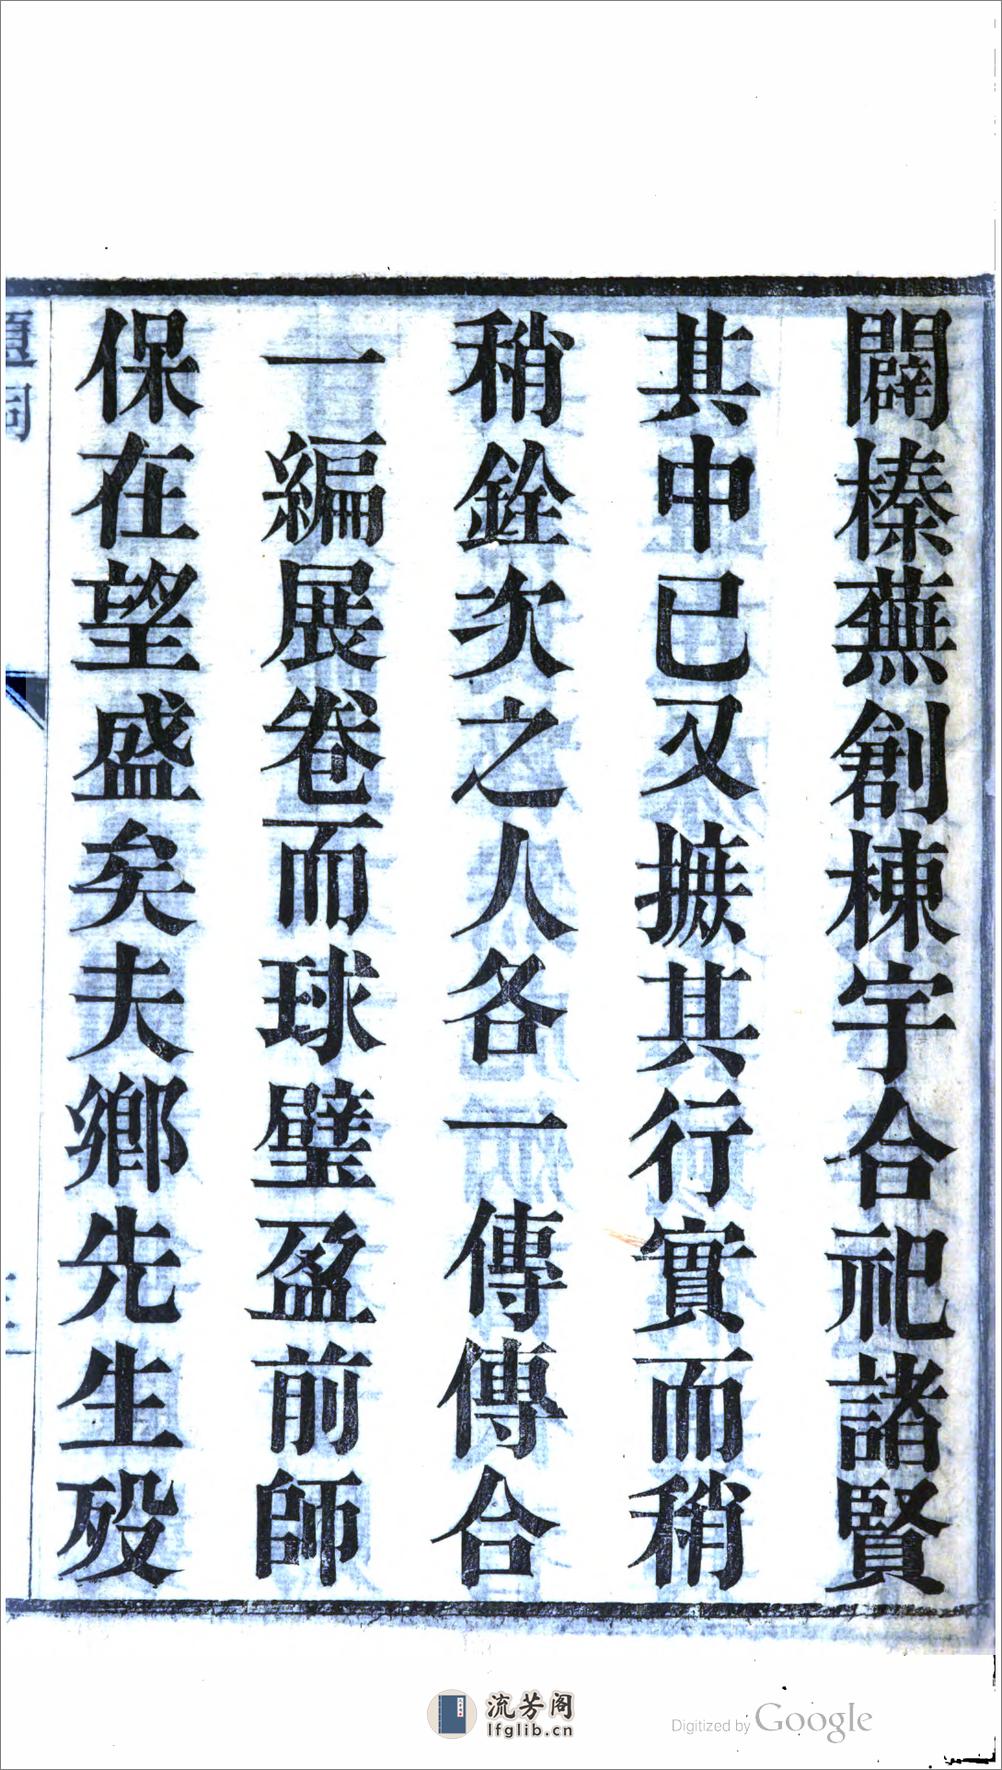 闢榛蕪創棟宇合祀諸賢
其中已又摭其行實而稍
稍銓次之人各一傳傳合
一編展卷而球璧盈前師
保在望盛矣夫鄉先生歿
流芳阁
lfglib.cn
Digitized by Google